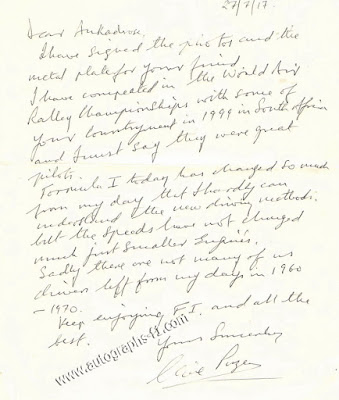 27/7/17.
Dear Arkadiusz.
I have signed the photos and the
metal plate for your friend
I have competed in the World Air
Rally Championships with some of
your Countrymen in 1999 in South Africa
and I must say they were great
pilots.
Formula 1 today has changed so much
from my day that I hardly can
understand the new driving methods.
but the speeds have not changed
much just smaller Engines.
Sadly there are not many of us
drivers left from my days in 1960
- 1970.
Keep enjoying F.1. and all the
best.
Yours Sincerely
Clive Puzey
www.autographs-f1.com